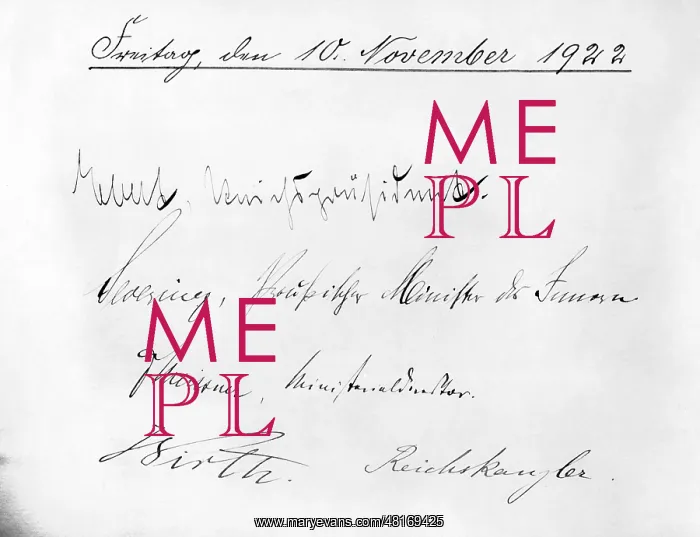 Freitag, den 10. November 1922
ME
PL
Ebert, Reichspräsident.
Severing, Preußischer Minister des Innern
ME
PL
Ministerialdirektor.
Wirth. Reichskanzler.
www.maryevans.com/48169425